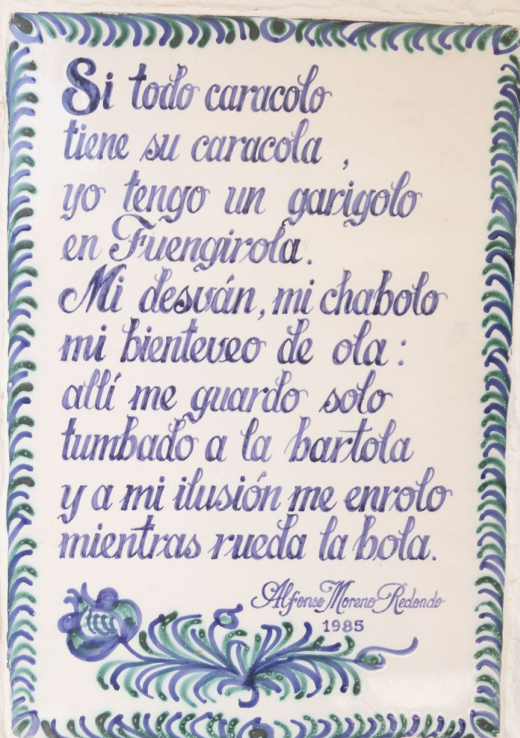 Si todo caracolo
tiene su caracola ,
yo tengo un garigolo
en Fuengirola.
Mi desván, mi chabolo
mi bienteveo de ola :
allí me guardo solo
tumbado a la bartola
y a mi ilusión me enrolo
mientras rueda la bola.
Alfonso Moreno Redondo
1985